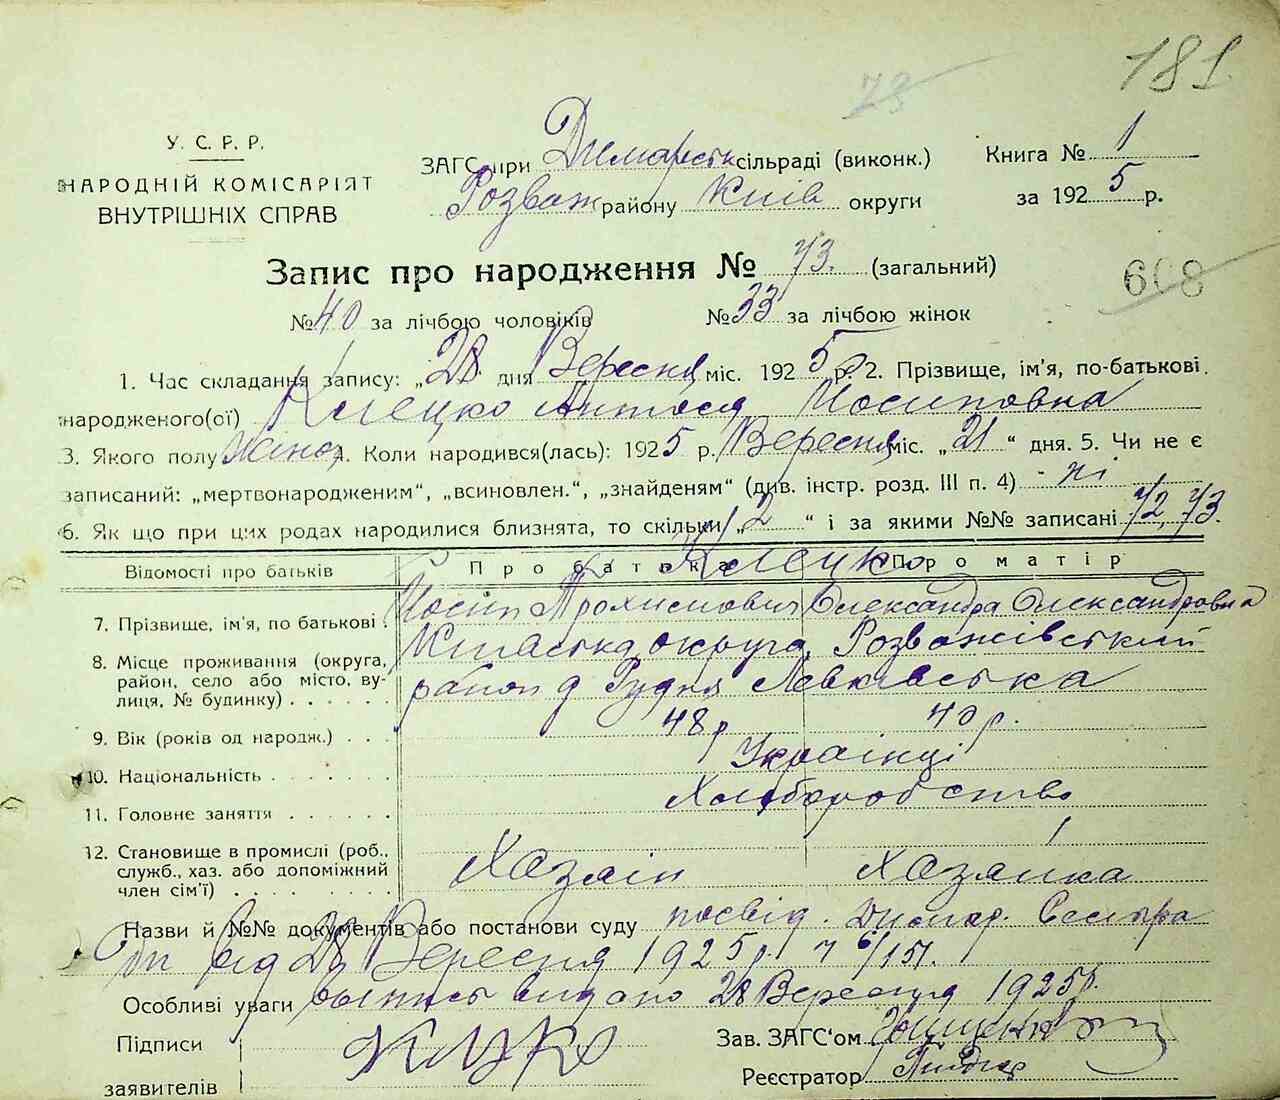 181
73
У. С. Р. Р.
НАРОДНІЙ КОМІСАРІЯТ
ВНУТРІШНІХ СПРАВ
ЗАГС при Димарськ сільраді (виконк.)
Розваж району Київ округи
Книга № 1
за 1925 р.
Запис про народження № 73. (загальний)
608
№ 40 за лічбою чоловіків № 33 за лічбою жінок
1. Час складання запису: „28 дня Вересня міс. 1925 р. 2. Прізвище, ім'я, по-батькові
народженого(ої) Клецко Антося Йосиповна
3. Якого полу Жіноч 4. Коли народився(лась): 1925 р. Вересня міс. „21“ дня. 5. Чи не є
записаний: „мертвонародженим“, „всиновлен.“, „знайденям“ (див. інстр. розд. III п. 4) - ні
6. Як що при цих родах народилися близнята, то скільки „2“ і за якими №№ записані 72, 73.
Відомості про батьків Про батька Про матір
Клецко
7. Прізвище, ім'я, по батькові. Йосип Трохимович Олександра Олександровна
8. Місце проживання (округа, район, село або місто, вулиця, № будинку) Київська округа, Розважівський
район д Рудня Левківська
9. Вік (років од народж.) 48 р 40 р.
10. Національність Українці
11. Головне заняття Хліборобство
12. Становище в промислі (роб., служб., хаз. або допоміжний член сім'ї) Хазяін Хазяйка
Назви й №№ документів або постанови суду посвід. Димар.
від 28 Вересня 1925 р.
Особливі уваги выпись видано 28 Вересня 1925 р.
Підписи
заявителів
Зав. ЗАГС'ом
Реєстратор